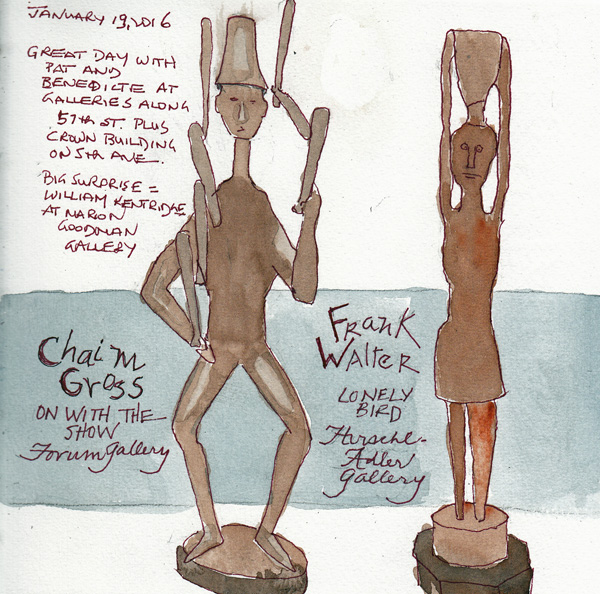 JANUARY 19, 2016
GREAT DAY WITH
PAT AND
BENEDICTE AT
GALLERIES ALONG
57TH ST. PLUS
CROWN BUILDING
ON 5TH AVE.
BIG SURPRISE =
WILLIAM KENTRIDGE
AT MARION
GOODMAN
GALLERY
Chaim
Gross
ON WITH THE
SHOW
Forum Gallery
Frank
Walter
LONELY
BIRD
Hirschl-
Adler
Gallery